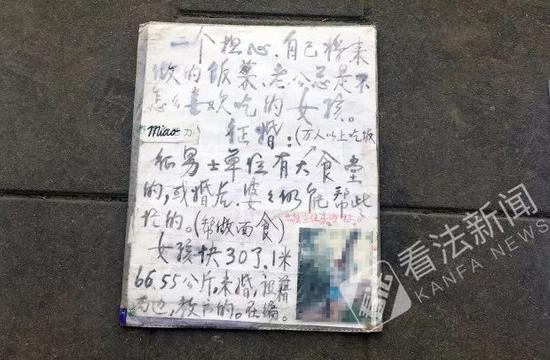 一个担心、自己将来
做的饭菜、老公总是不
怎么喜欢吃的女孩。
miao
征婚：（万人以上吃饭
征男士单位有大食堂
的，或婚后、婆婆仍能帮此
忙的。（帮做面食）
女孩快30了，1米
66.55公斤，未婚，祖籍
教育的。在编。
看法新闻
KANFA NEWS